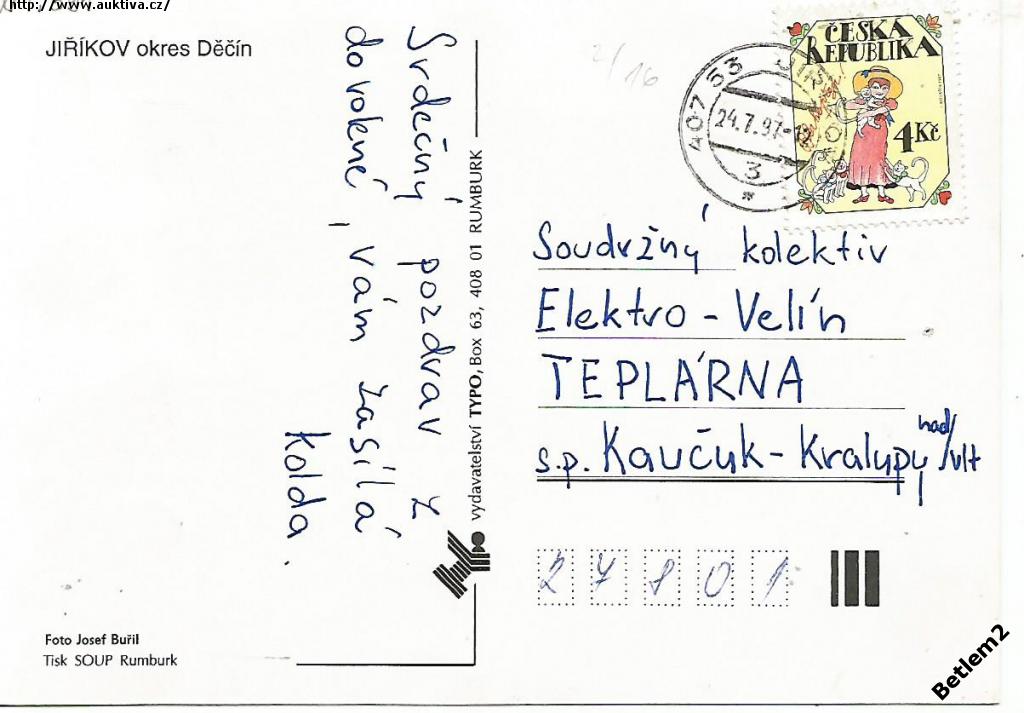 http://www.auktiva.cz/
JIŘÍKOV okres Děčín
Srdečný pozdrav z
dovolené, vám zasílá
Kolda.
vydavatelství TYPO, Box 63, 408 01 RUMBURK
2/16
407 53
24.7.97-12
3
ČESKÁ
REPUBLIKA
4 Kč
Soudržný kolektiv
Elektro - Velín
TEPLÁRNA
s.p. Kaučuk - Kralupy nad/vlt
27801
Foto Josef Buřil
Tisk SOUP Rumburk
Betlem2